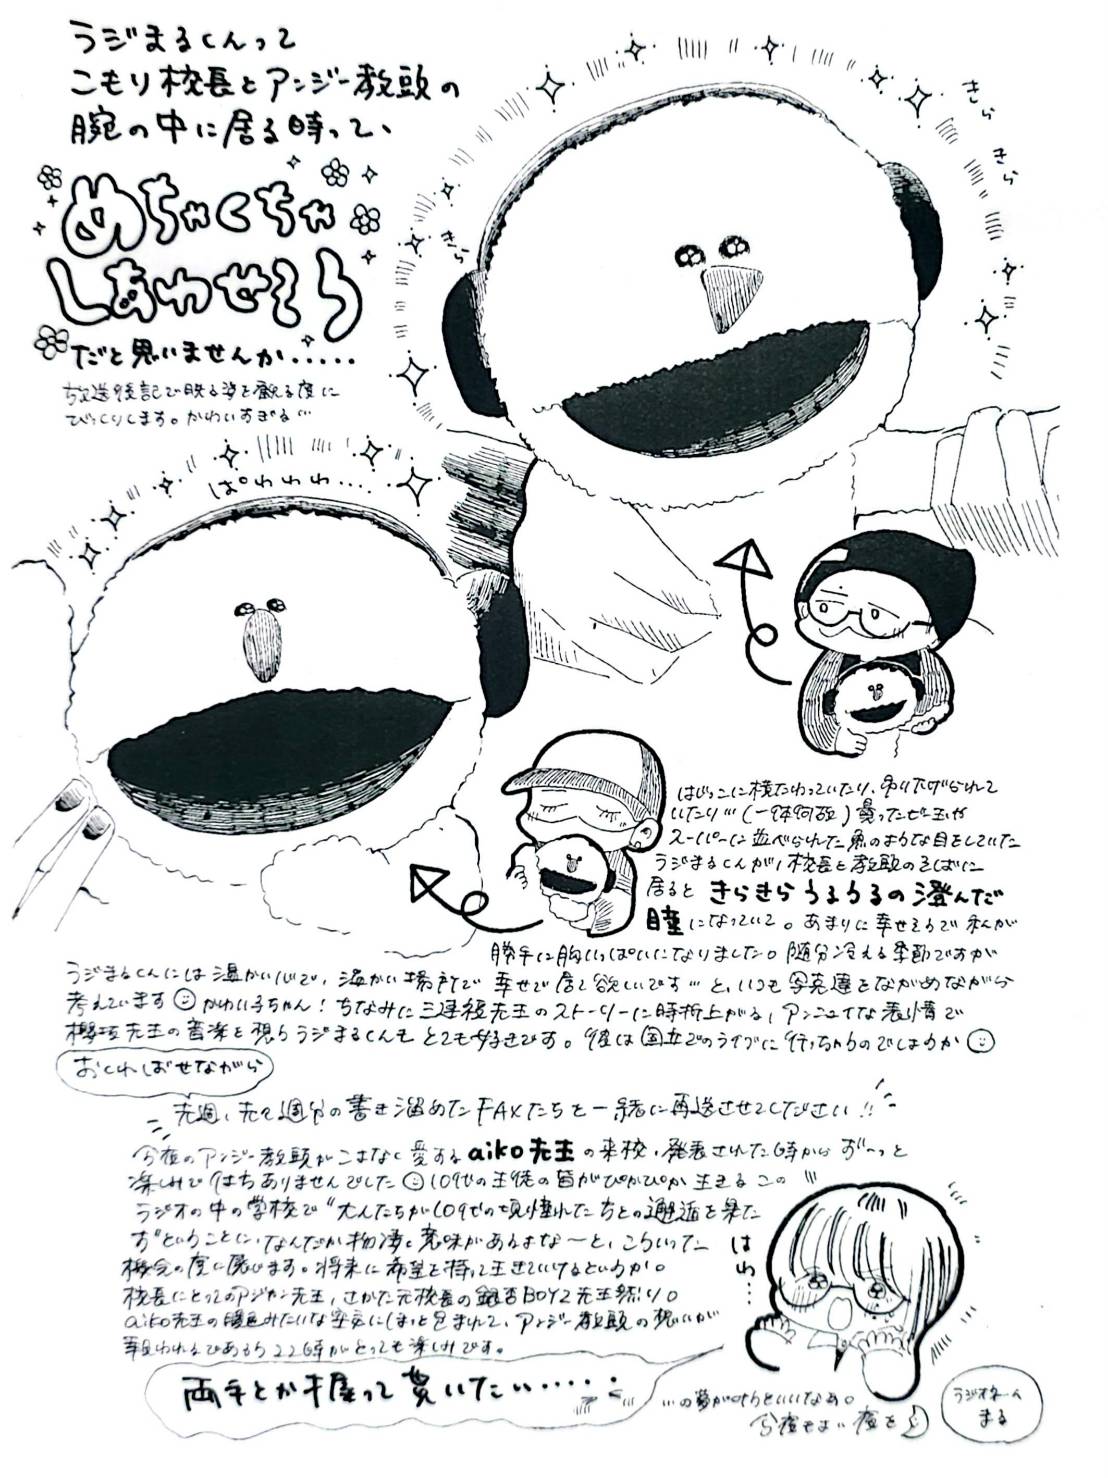 ラジまるくんって
こもり校長とアンジー教頭の
腕の中に居る時って、
めちゃくちゃ
しあわせそう
だと思いませんか・・・・・
放送後記で映る姿を観る度に
びっくりします。かわいすぎる…
きら
きら
きら
ぱわわわ・・・・
はじっこに横たわっていたり、吊り下げられて
いたり…(一体何故)曇ったビー玉や
スーパーに並べられた魚のような目をしていた
ラジまるくんが、校長と教頭のそばに
居ると きらきらうるうるの澄んだ
瞳になっていて。あまりに幸せそうで私が
勝手に胸いっぱいになりました。随分冷える季節ですが
ラジまるくんには温かい心で、温かい場所で 幸せで居て欲しいです… と、いつも写真達をながめながら
考えています かわい子ちゃん! ちなみに三連後先生のストーリーに時折上がる、アンニュイな表情で
先生の音楽を想うラジまるくんも とても好きです。彼は国立でのライブに行っちゃうのでしょうか
おくればせながら
先週、先々週分の書き溜めたFAXたちを一緒に再送させてください!!
今夜のアンジー教頭がこよなく愛するaiko先生の来校、発表された時から ず〜っと
楽しみで仕方ありませんでした 10代の生徒の皆がぴかぴか生きる この
ラジオの中の学校で"大人たちが10代の頃憧れた方との邂逅を果た
す"ということに、なんだか物凄く意味があるよな〜と、こういった
機会の度に感じます。将来に希望を持って生きていけるというか。
校長にとってのアジカン先生、さかた元校長の銀杏BOYZ先生然り。
aiko先生の暖色みたいな空気にほっと包まれて、アンジー教頭の想いが
報われるであろう22時がとっても楽しみです。
はわ…
両手とか握って貰いたい・・・・・
…の夢が叶うといいなぁ。
今夜もよい夜を
ラジオネーム
まる